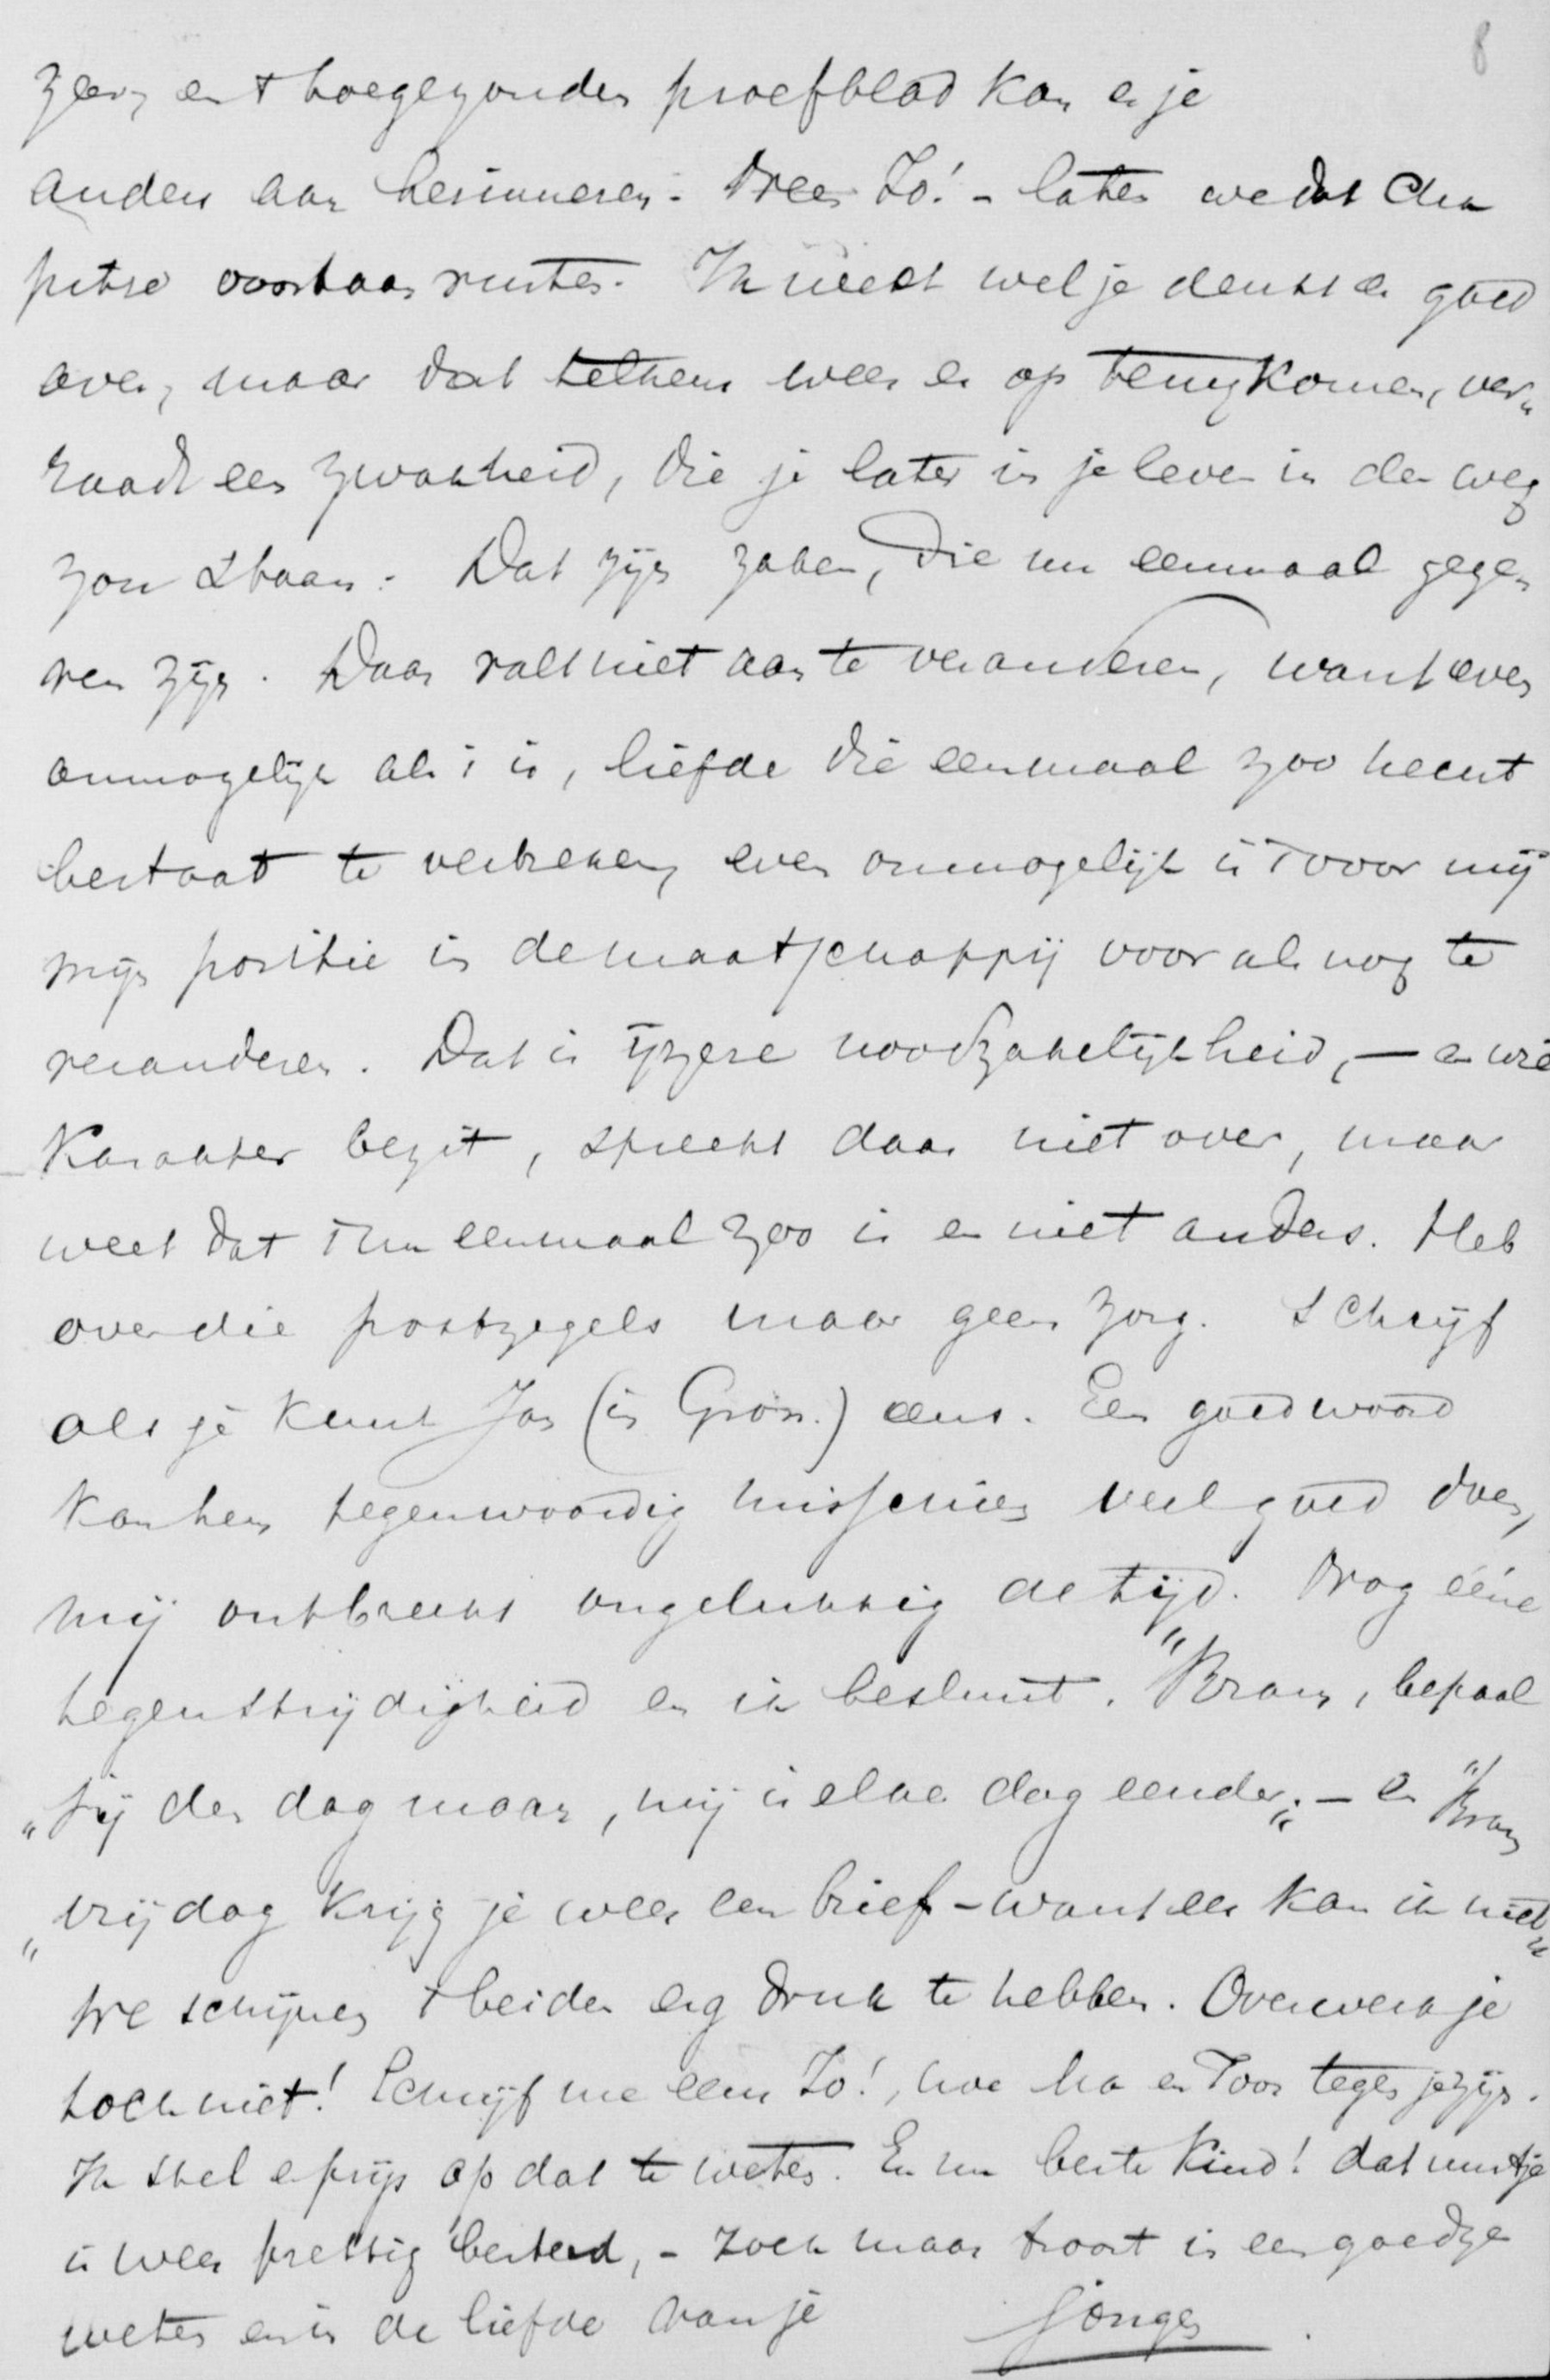 8
zeer, en 't toegezonden proefblad kan er je
anders aan herinneren. Nee Jo! - laten we dat cha
pitre voortaan rusten. Ik weet wel je denkt er goed
over, maar dat telkens weer er op terugkomen, ver„
raadt een zwakheid, die je later in je leven in den weg
zou staan. Dat zijn zaken, die nu eenmaal gege„
ven zijn. Daar valt niet aan te veranderen, want even
onmogelijk als 't is, liefde die eenmaal zoo hecht
bestaat te verbreken, even onmogelijk is 't voor mij
mijn positie in de maatschappij vooralsnog te
veranderen. Dat is ijzere noodzakelijkheid, — en wie
karakter bezit, spreekt daar niet over, maar
weet dat 't nu eenmaal zoo is en niet anders. Heb
over die postzegels maar geen zorg. Schrijf
als je kunt Jan (in Gron.) eens. Een goed woord
kan hem tegenwoordig misschien veel goed doen,
mij ontbreekt ongelukkig de tijd. Nog ééne
tegenstrijdigheid en ik besluit. "Bram, bepaal
„jij den dag maar, mij is elke dag eender„; — en "Bram
„vrijdag krijg je weer een brief - want eer kan ik niet„
We schijnen 't beiden erg druk te hebben. Overwerk je
toch niet! Schrijf me eens Jo!, hoe Ma en Toos tegen je zijn.
Ik stel er prijs op dat te weten. En nu beste kind! dat uurtje
is weer prettig besteed, - zoek maar troost in een goedge
weten en in de liefde van je jongen.